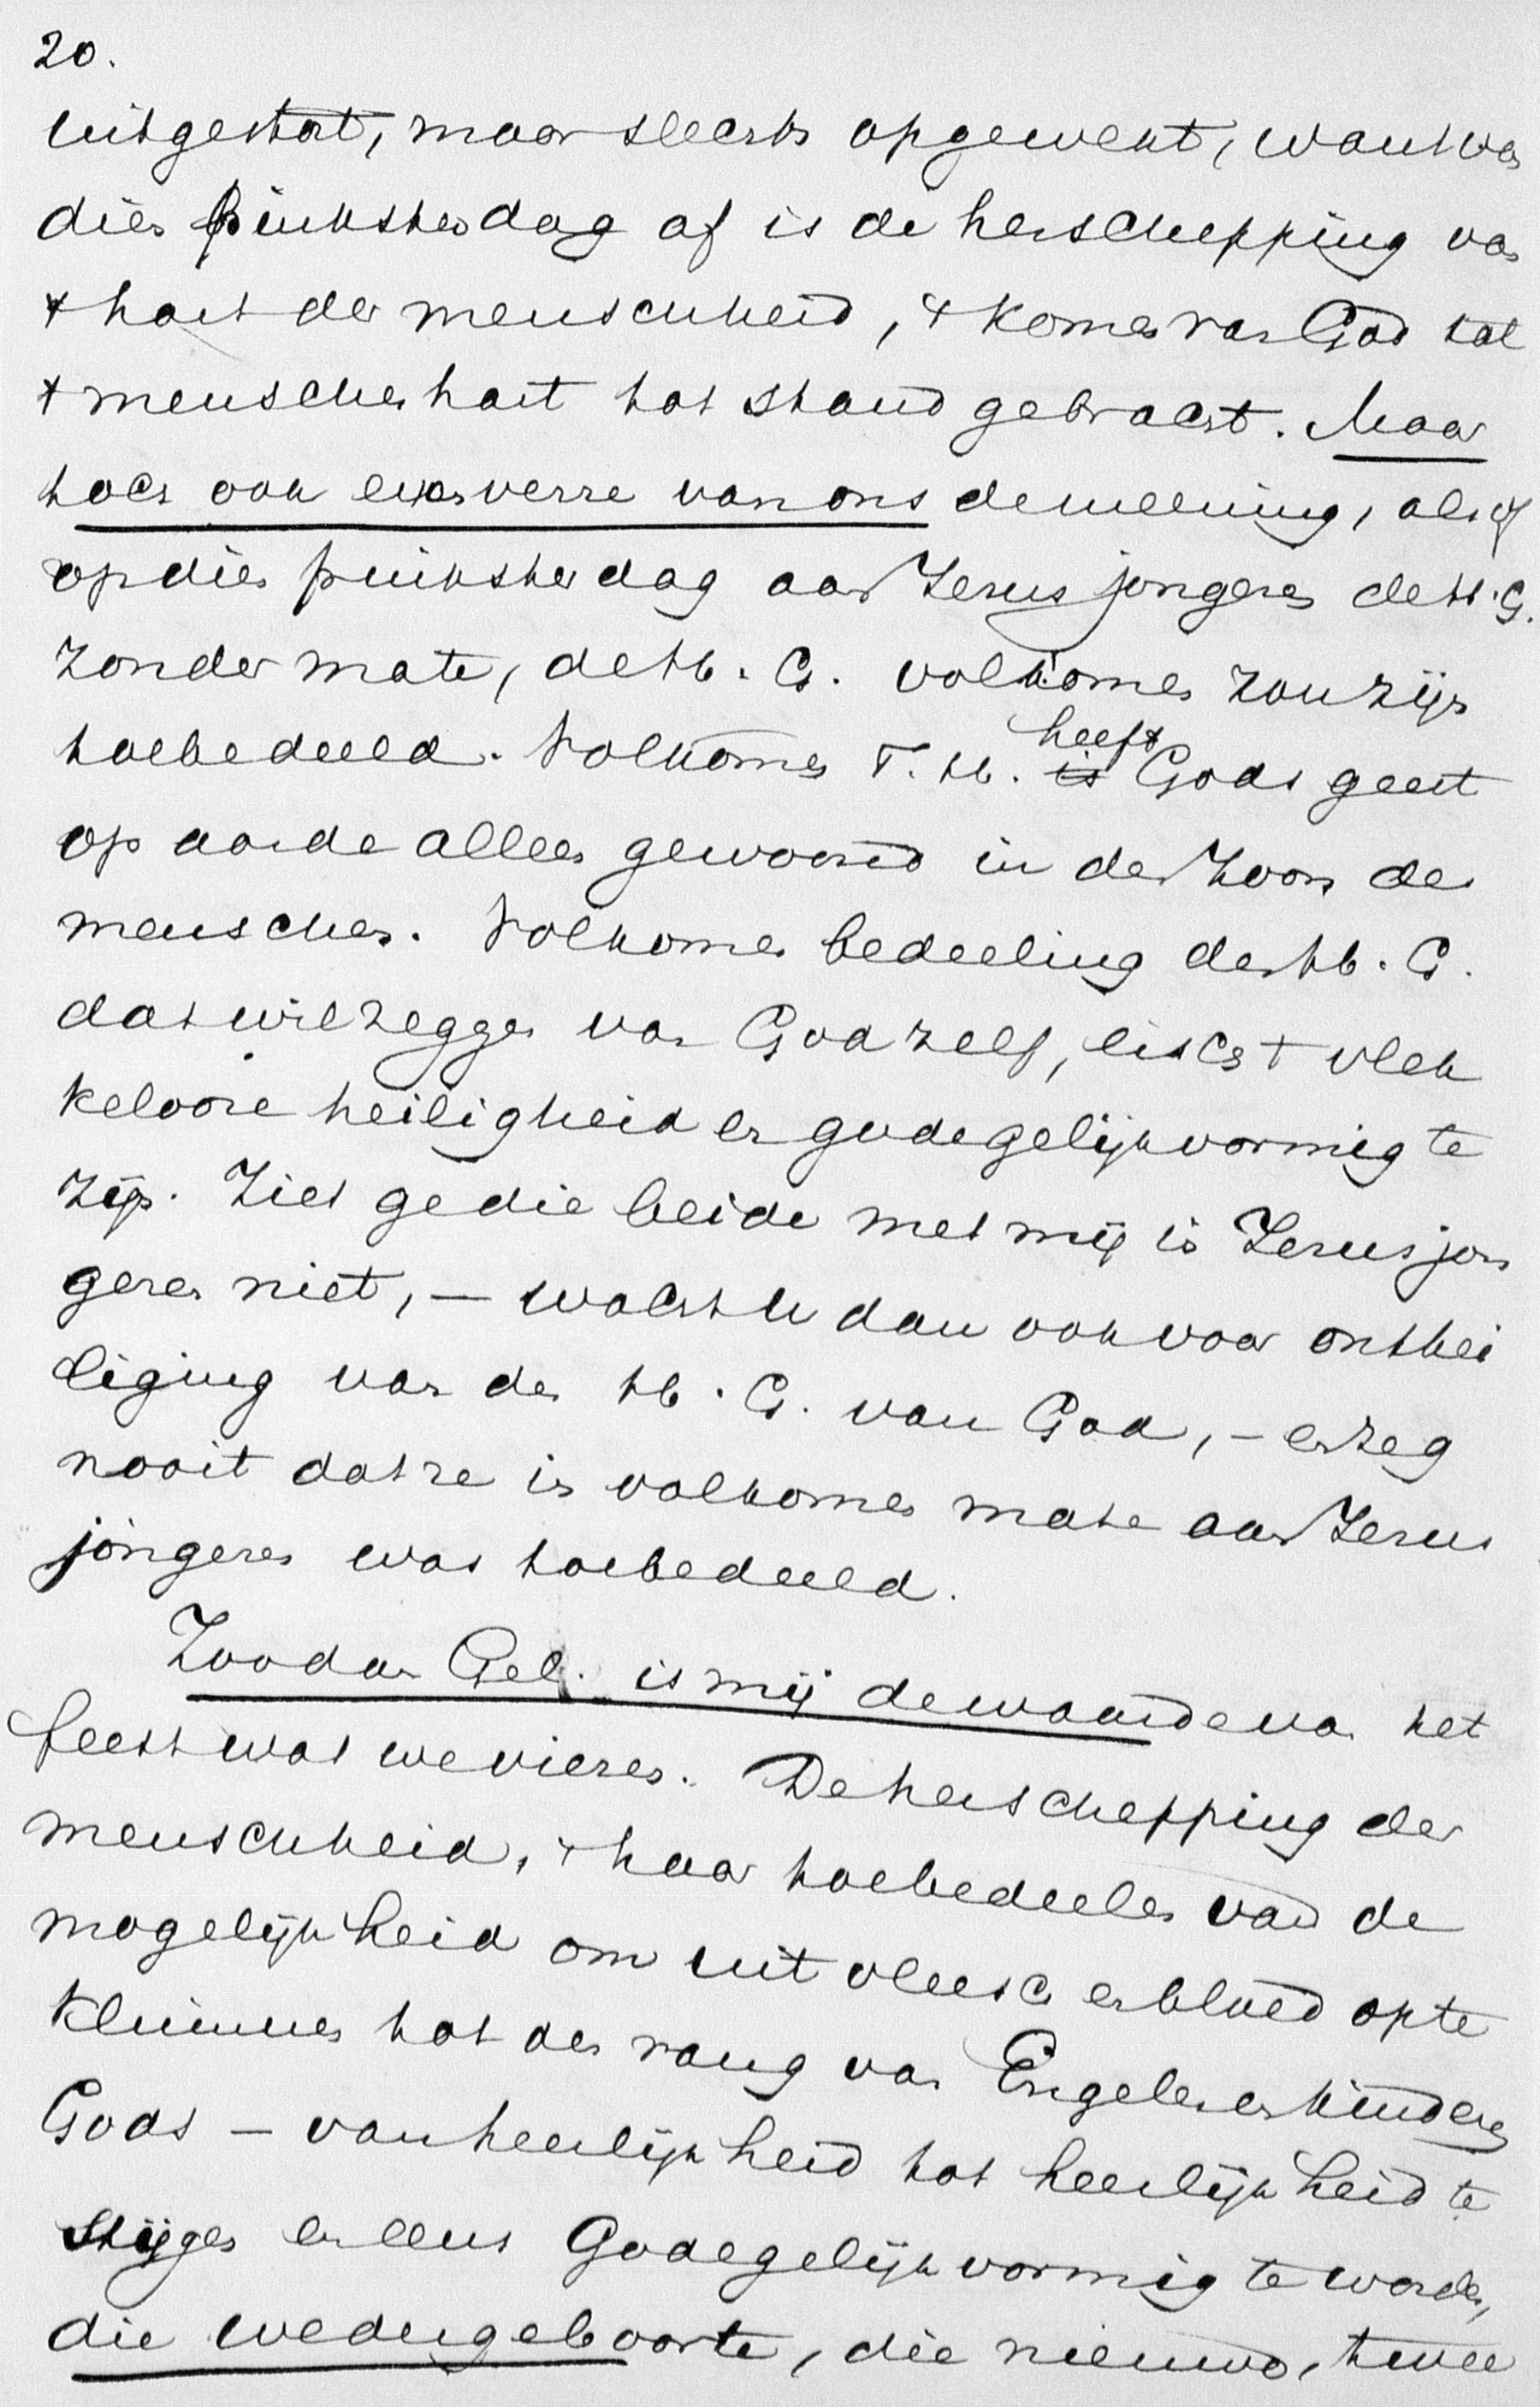 20.
uitgestort, maar slechts opgewekt, want van
dien pinksterdag af is de herschepping van
't hart der menschheid, 't komen van God tot
't menschenhart tot stand gebracht. Maar
toch ook even verre van ons de meening, alsof
op dien pinksterdag aan Jezus jongeren de H. G.
zonder mate, de H. G. volkomen zou zijn
toebedeeld. Volkomen T. H. heeft Gods geest
op aarde alleen gewoond in den Zoon des
menschen. Volkomen bedeeling des H. G.
dat wil zeggen van God zelf, eischt vlek
kelooze heiligheid en gode gelijkvormig te
zijn. Ziet ge die beide met mij in Jezus jon
geren niet, — wacht U dan ook voor onthei
liging van den H. G. van God, — en zeg
nooit dat ze in volkomen mate aan Jezus
jongeren was toebedeeld.
Zoodan Gel. is mij de waarde van het
feest wat we vieren. De herschepping der
menschheid, 't haar toebedeelen van de
mogelijkheid om uit vleesch en bloed op te
klimmen tot den rang van Engelen en kinderen
Gods — van heerlijkheid tot heerlijkheid te
stijgen en eens Godegelijkvormig te worden,
die wedergeboorte, die nieuwe, twee